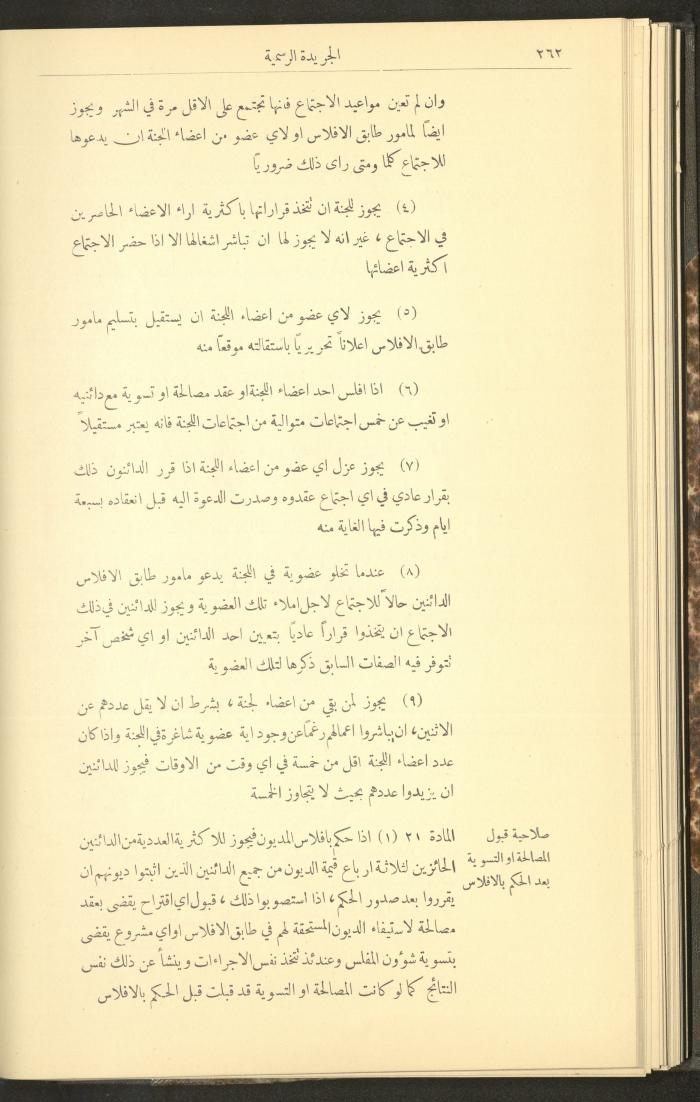 ٢٦٢
الجريدة الرسمية
وان لم تعين مواعيد الاجتماع فانها تجتمع على الاقل مرة في الشهر ويجوز
ايضاً لمامور طابق الافلاس او لاي عضو من اعضاء الجنة ان يدعوها
للاجتماع كلما ومتى راى ذلك ضرورياً
(٤) يجوز للجنة ان تتخذ قراراتها باكثرية اراء الاعضاء الحاصرين
في الاجتماع ، غير انه لا يجوز لها ان تباشر اشغالها الا اذا حضر الاجتماع
اكثرية اعضائها
(٥) يجوز لاي عضو من اعضاء اللجنة ان يستقيل بتسليم مامور
طابق الافلاس اعلاناً تحريرياً باستقالته موقعاً منه
(٦) اذا افلس احد اعضاء اللجنة او عقد مصالحة او تسوية مع دائنيه
او تغيب عن خمس اجتماعات متوالية من اجتماعات اللجنة فانه يعتبر مستقيلاً
(٧) يجوز عزل اي عضو من اعضاء اللجنة اذا قرر الدائنون ذلك
بقرار عادي في اي اجتماع عقدوه وصدرت الدعوة اليه قبل انعقاده بسبعة
ايام وذكرت فيها الغاية منه
(٨) عندما تخلو عضوية في اللجنة يدعو مامور طابق الافلاس
الدائنين حالاً للاجتماع لاجل املاء تلك العضوية ويجوز للدائنين في ذلك
الاجتماع ان يتخذوا قراراً عادياً بتعيين احد الدائنين او اي شخص آخر
تتوفر فيه الصفات السابق ذكرها لتلك العضوية
(٩) يجوز لمن بقي من اعضاء لجنة ، بشرط ان لا يقل عددهم عن
الاثنين، ان يباشروا اعمالهم رغماً عن وجود اية عضوية شاغرة في اللجنة واذا كان
عدد اعضاء اللجنة اقل من خمسة في اي وقت من الاوقات فيجوز للدائنين
ان يزيدوا عددهم بحيث لا يتجاوز الخمسة
صلاحية قبول
المصالحة او التسوية
بعد الحكم بالافلاس
المادة ٢١ (١) اذا حكم بافلاس المديون فيجوز للاكثرية العددية من الدائنين
الحائزين لثلاثة ارباع قيمة الديون من جميع الدائنين الذين اثبتوا ديونهم ان
يقرروا بعد صدور الحكم ، اذا استصوبوا ذلك ، قبول اي اقتراح يقضى بعقد
مصالحة لاستيفاء الديون المستحقة لهم في طابق الافلاس او اي مشروع يقضى
بتسوية شؤون المفلس وعندئذ تتخذ نفس الاجراءات وينشأ عن ذلك نفس
النتائج كما لو كانت المصالحة او التسوية قد قبلت قبل الحكم بالافلاس